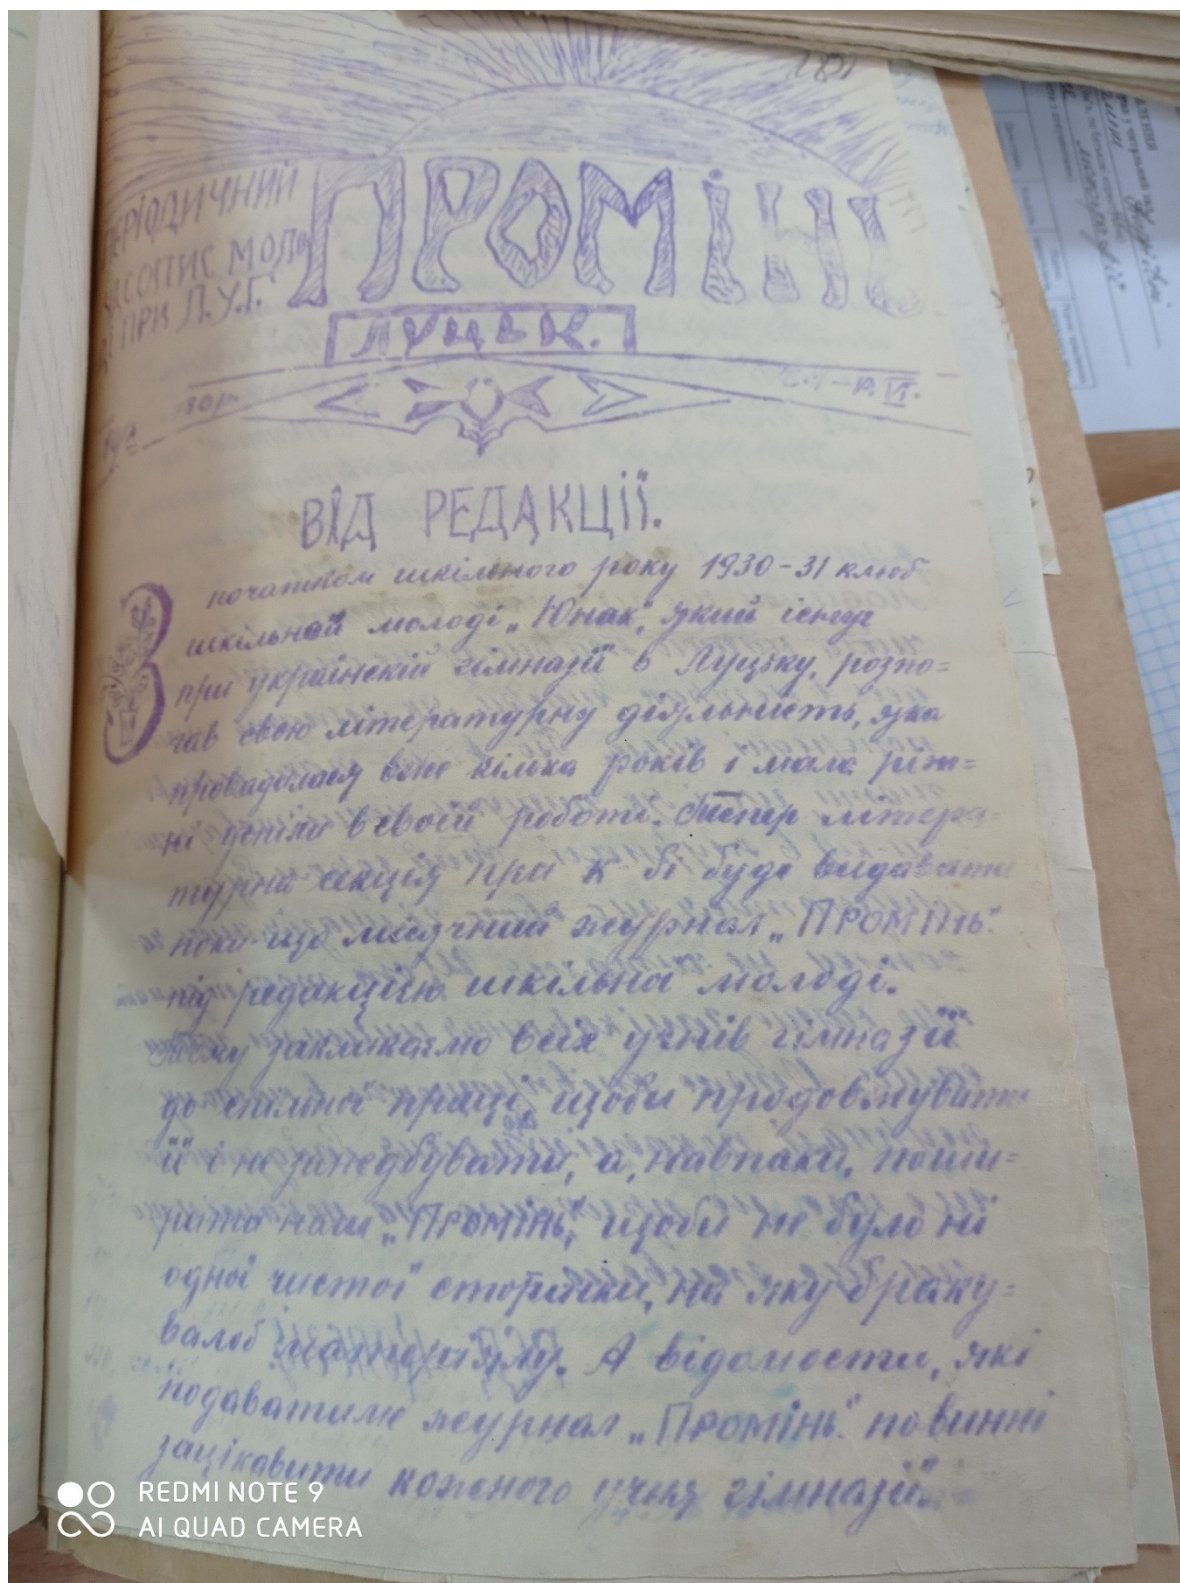 ПЕРІОДИЧНИЙ
ЧАСОПИС МОЛОДІ
ПРИ Л.У.Г.
ПРОМІНЬ
ЛУЦЬК.
30 р.
Р. VI.
ВІД РЕДАКЦІЇ.
З початком шкільного року 1930-31 клюб
шкільной молоді „Юнак", який існує
при українскій гімназії в Луцьку, розпо=
чав свою літературну діяльність, яка
провадилася вже кілька років і мала ріж=
ні успіхи в своєй роботі. Тепер літера=
турна секція при К-бі буде видавати
поки-що місячний журнал „ПРОМІНЬ"
під редакцією шкільна молоді.
Тому закликаємо всіх учнів гімназії
до спільної праці, щоби продовжувати
її і не занедбувати, а, навпаки, поши=
рити наш „ПРОМІНЬ", щоби не було ні
одної чистої сторінки, на яку браку=
валоб матеріялу. А відомости, які
подаватиме журнал „ПРОМІНЬ" повинні
зацікавити кожного учня гімназії.
REDMI NOTE 9
AI QUAD CAMERA